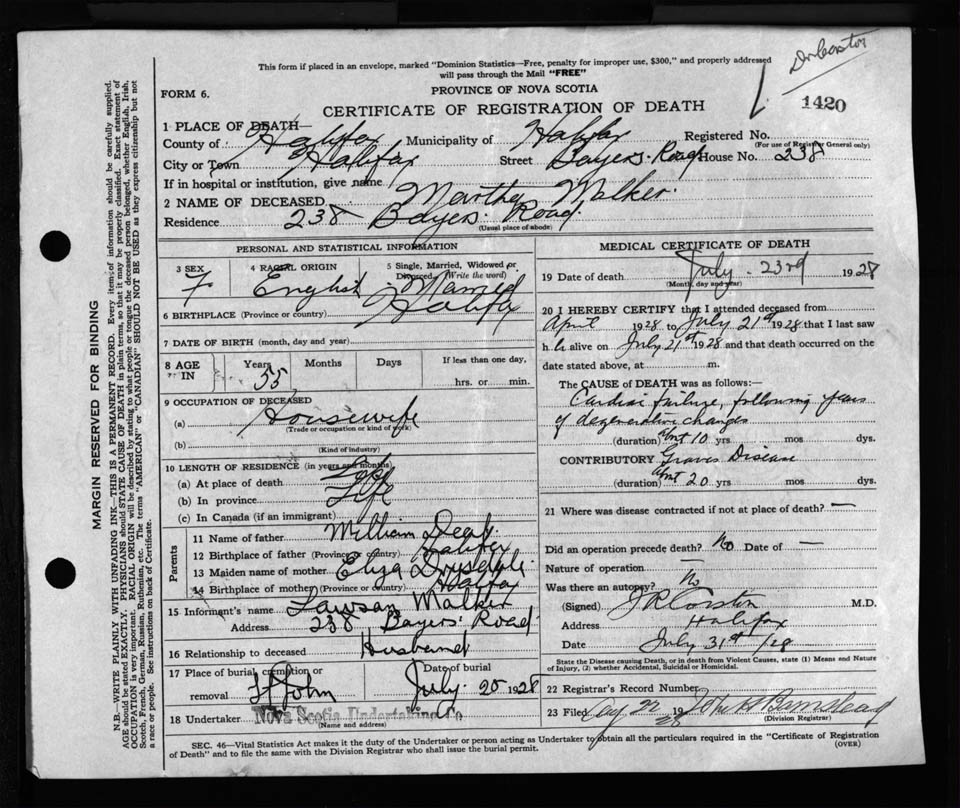 Dr Corston
This form if placed in an envelope, marked "Dominion Statistics—Free, penalty for improper use, $300," and properly addressed
will pass through the Mail "FREE"
FORM 6.
PROVINCE OF NOVA SCOTIA
CERTIFICATE OF REGISTRATION OF DEATH
1420
1 PLACE OF DEATH—
County of Halifax Municipality of Halifax Registered No.
(For use of Registrar General only)
City or Town Halifax Street Bayers Road House No. 238
If in hospital or institution, give name
2 NAME OF DECEASED Martha Walker
Residence 238 Bayers Road
(Usual place of abode)
PERSONAL AND STATISTICAL INFORMATION
3 SEX F
4 RACIAL ORIGIN English
5 Single, Married, Widowed or Divorced (Write the word) Married
6 BIRTHPLACE (Province or country) Halifax
7 DATE OF BIRTH (month, day and year)
8 AGE IN Years 55 Months Days If less than one day,
hrs. or min.
9 OCCUPATION OF DECEASED
(a) Housewife
(Trade or occupation or kind of work)
(b)
(Kind of industry)
10 LENGTH OF RESIDENCE (in years and months)
(a) At place of death Life
(b) In province Life
(c) In Canada (if an immigrant)
Parents
11 Name of father William Deal
12 Birthplace of father (Province or country) Halifax
13 Maiden name of mother Eliza
14 Birthplace of mother (Province or country) Halifax
15 Informant's name Lawson Walker
Address 238 Bayers Road
16 Relationship to deceased Husband
17 Place of burial, cremation or removal St John Date of burial July 25 1928
18 Undertaker Nova Scotia Undertaking Co
(Name and address)
MEDICAL CERTIFICATE OF DEATH
19 Date of death July 23rd 1928
(Month, day and year)
20 I HEREBY CERTIFY that I attended deceased from
April 1928 to July 21st 1928 that I last saw
h er alive on July 21st 1928 and that death occurred on the
date stated above, at m.
The CAUSE OF DEATH was as follows:—
Cardiac failure, following years
of degenerative changes
(duration) abnt 10 yrs mos dys.
CONTRIBUTORY Graves Disease
(duration) abnt 20 yrs mos dys.
21 Where was disease contracted if not at place of death? —
Did an operation precede death? No Date of —
Nature of operation —
Was there an autopsy? No
(Signed) J R Corston M.D.
Address Halifax
Date July 31st /28
State the Disease causing Death, or in death from Violent Causes, state (1) Means and Nature
of Injury, (2) whether Accidental, Suicidal or Homicidal.
22 Registrar's Record Number
23 Filed Aug 22 1928 John H Barnstead
(Division Registrar)
SEC. 46—Vital Statistics Act makes it the duty of the Undertaker or person acting as Undertaker to obtain all the particulars required in the "Certificate of Registration
of Death" and to file the same with the Division Registrar who shall issue the burial permit.
(OVER)
MARGIN RESERVED FOR BINDING
N.B.—WRITE PLAINLY WITH UNFADING INK—THIS IS A PERMANENT RECORD. Every item of information should be carefully supplied.
AGE should be stated EXACTLY. PHYSICIANS should STATE CAUSE OF DEATH in plain terms, so that it may be properly classified. Exact statement of
OCCUPATION is very important. RACIAL ORIGIN will be described by stating to what people or tongue the deceased person belonged, whether English, Irish,
Scotch, French, German, Russian, Ruthenian, etc. The terms "AMERICAN" or "CANADIAN" SHOULD NOT BE USED as they express citizenship but not
a race or people. See instructions on back of Certificate.